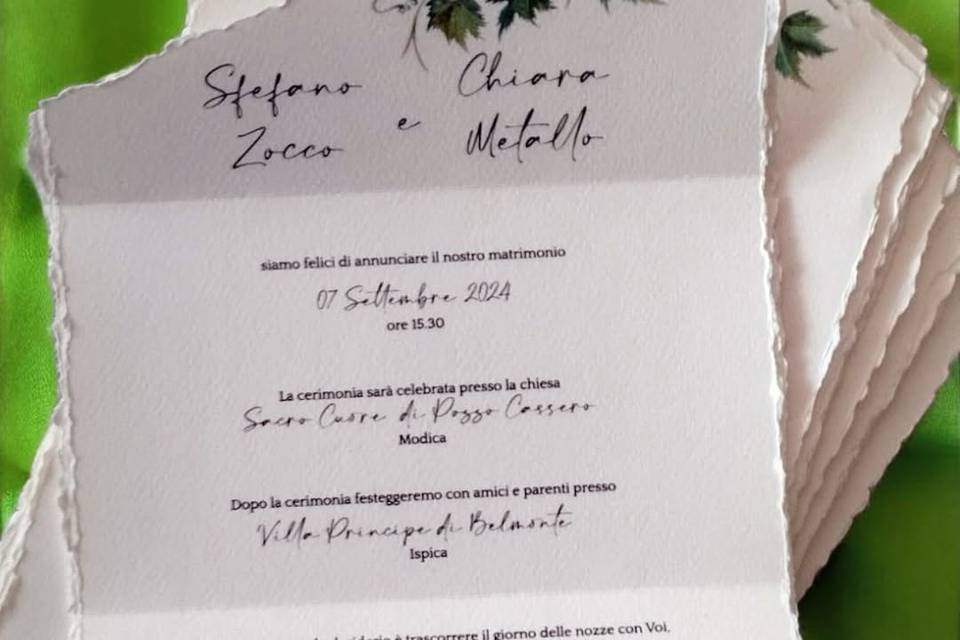 Stefano Chiara
Zocco e Metallo
siamo felici di annunciare il nostro matrimonio
07 Settembre 2024
ore 15.30
La cerimonia sarà celebrata presso la chiesa
Sacro Cuore di Pozzo Cassero
Modica
Dopo la cerimonia festeggeremo con amici e parenti presso
Villa Principe di Belmonte
Ispica
è trascorrere il giorno delle nozze con Voi.